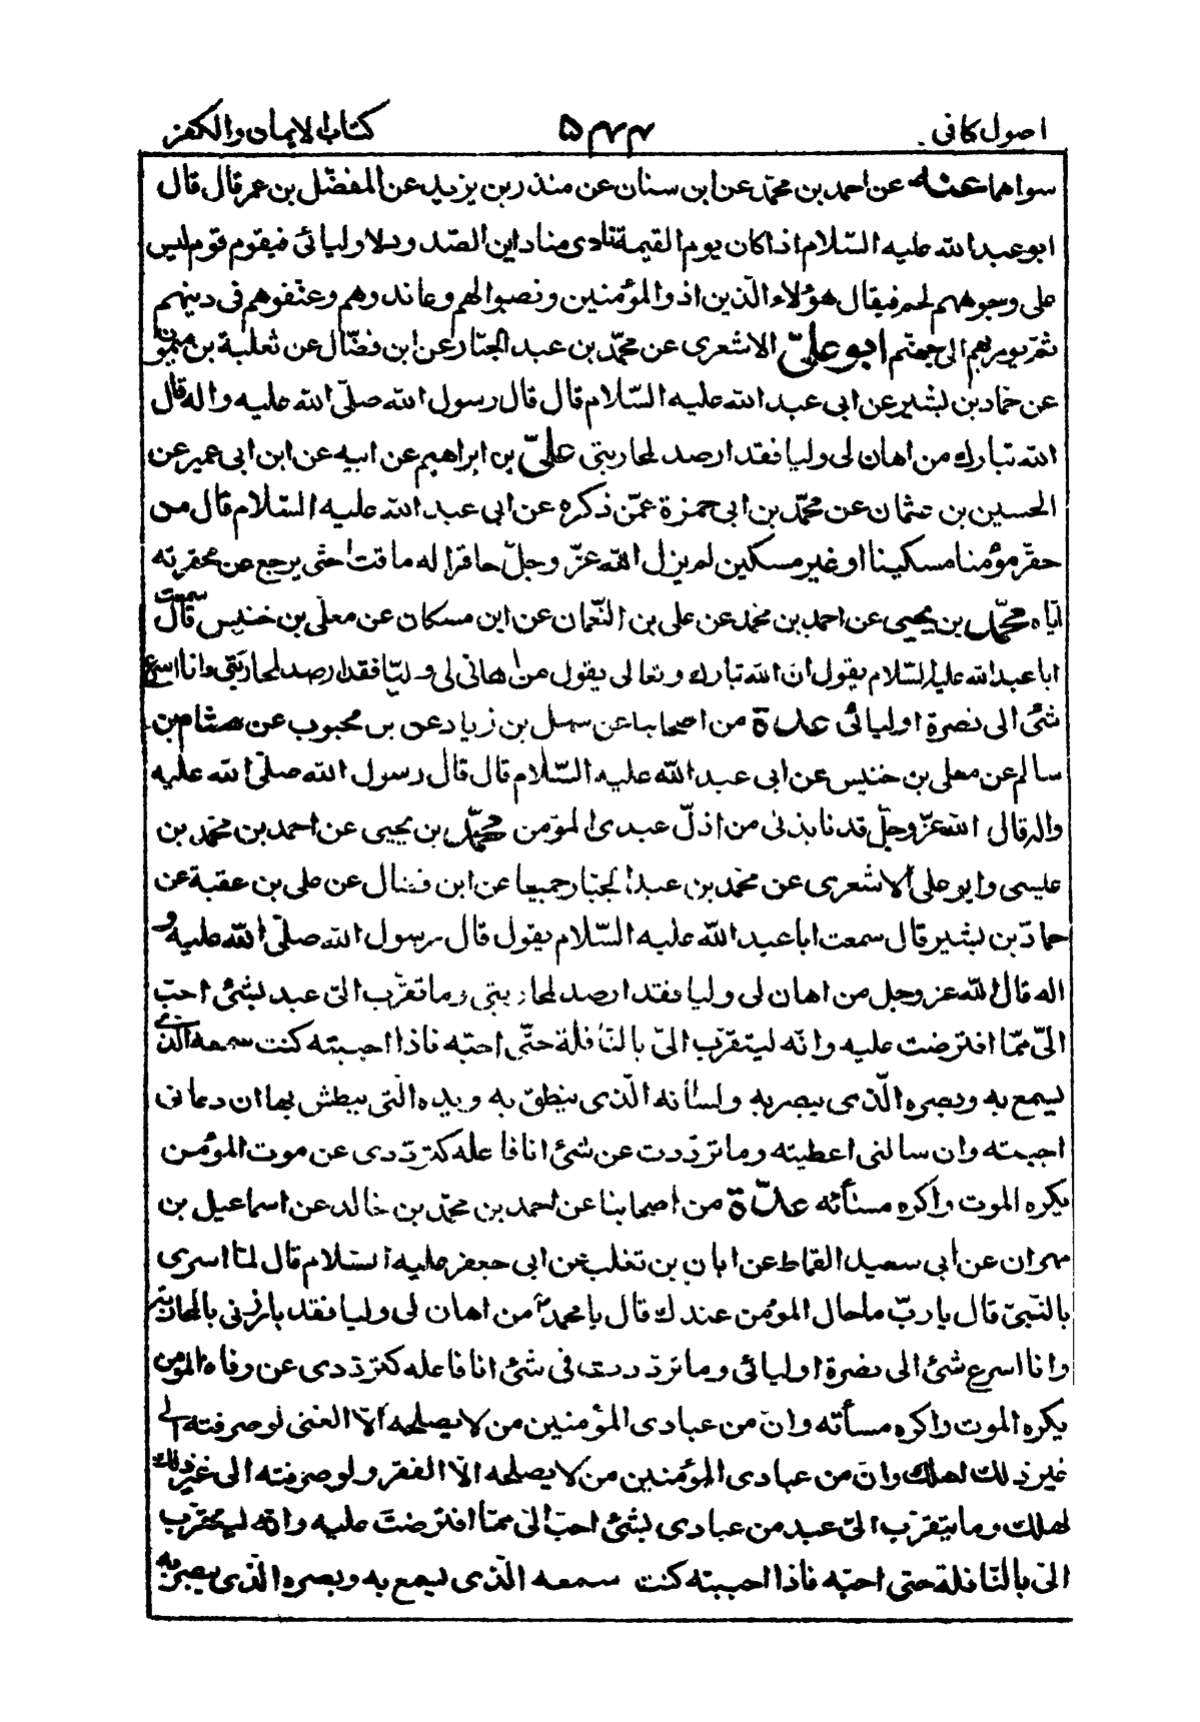 اصول كافى ٥٤٤ كتاب الايمان والكفر
سواهما عنه عن احمد بن محمّد عن ابن سنان عن منذر بن يزيد عن المفضّل بن عمر قال قال
ابو عبد الله عليه السّلام اذا كان يوم القيمة نادى مناد اين الصّدود لاوليائى فيقوم قوم ليس
على وجوههم لحم فيقال هؤلاء الّذين اذوا المؤمنين ونصبوا لهم وعاندوهم وعنّفوهم فى دينهم
ثمّ يومر بهم الى جهنّم ابو علىّ الاشعرى عن محمّد بن عبد الجبّار عن ابن فضّال عن ثعلبة بن ميمون
عن حمّاد بن بشير عن ابى عبد الله عليه السّلام قال قال رسول الله صلّى الله عليه واله قال
الله تبارك من اهان لى وليا فقد ارصد لمحاربتى علىّ بن ابراهيم عن ابيه عن ابن ابى عمير عن
الحسين بن عثمان عن محمّد بن ابى حمزة عمّن ذكره عن ابى عبد الله عليه السّلام قال من
حقّر مؤمنا مسكينا او غير مسكين لم يزل الله عزّ وجلّ حاقرا له ماقتا حتّى يرجع عن محقرته
ايّاه محمّد بن يحيى عن احمد بن محمّد عن على بن النّعمان عن ابن مسكان عن معلّى بن خنيس قال سمعت
ابا عبد الله عليه السّلام يقول انّ الله تبارك وتعالى يقول من اهان لى وليّا فقد ارصد لمحاربتى وانا اسرع
شئ الى نصرة اوليائى عدّة من اصحابنا عن سهل بن زياد عن بن محبوب عن هشام بن
سالم عن معلى بن خنيس عن ابى عبد الله عليه السّلام قال قال رسول الله صلّى الله عليه
واله قال الله عزّ وجلّ قد نابذنى من اذلّ عبدى المؤمن محمّد بن يحيى عن احمد بن محمّد بن
عليسى وابو على الاشعرى عن محمّد بن عبد الجبّار جميعا عن ابن فضال عن على بن عقبة عن
حمادّ بن بشير قال سمعت ابا عبد الله عليه السّلام يقول قال رسول الله صلّى الله عليه و
اله قال الله عز وجل من اهان لى وليا فقد ارصد لمحاربتى وما تقرّب الىّ عبد بشئ احبّ
الىّ ممّا افترضت عليه وانّه ليتقرّب الىّ بالنّافلة حتّى احبّه فاذا احببته كنت سمعه الّذى
يسمع به وبصره الّذى يبصر به ولسانه الّذى ينطق به ويده الّتى يبطش بها ان دعانى
اجبته وان سالنى اعطيته وما تردّدت عن شئ انا فاعله كتردّدى عن موت المؤمن
يكره الموت واكره مسأته عدّة من اصحابنا عن احمد بن محمّد بن خالد عن اسماعيل بن
مهران عن ابى سعيد القماط عن ابان بن تغلب عن ابى جعفر عليه السّلام قال لمّا اسرى
بالنّبىّ قال يا ربّ ما حال المؤمن عندك قال يا محمّد من اهان لى وليا فقد بارزنى بالمحاربة
وانا اسرع شئ الى نصرة اوليائى وما تردّدت فى شئ انا فاعله كتردّدى عن وفاة المؤمن
يكره الموت واكره مسأته وانّ من عبادى المؤمنين من لا يصلحه الّا الغنى لو صرفته الى
غير ذلك لهلك وانّ من عبادى المؤمنين من لا يصلحه الّا الفقر ولو صرفته الى غير ذلك
لهلك وما يتقرّب الىّ عبد من عبادى بشئ احبّ الىّ ممّا افترضت عليه وانّه ليتقرّب
الىّ بالنّافلة حتى احبّه فاذا احببته كنت سمعه الّذى يسمع به وبصره الّذى يبصر به